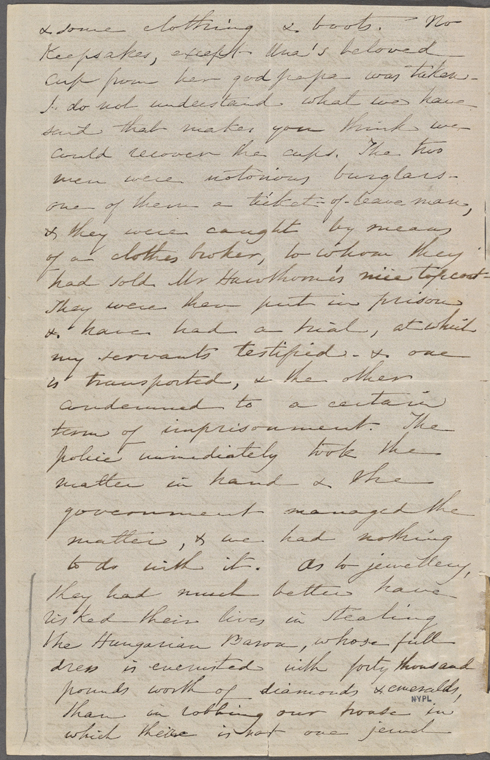 & some clothing & boots. No
Keepsakes, except Una's beloved
cup from her god papa was taken.
I do not understand what we have
said that makes you think we
could recover the cups. The two
men were notorious burglars -
one of them a ticket-of-leave man,
& they were caught by means
of a clothes broker, to whom they
had sold Mr Hawthorne's nice topcoat -
They were then put in prison
& have had a trial, at which
my servants testified - & one
is transported, & the other
condemned to a certain
term of imprisonment. The
police immediately took the
matter in hand & the
government managed the
matter, & we had nothing
to do with it. As to jewellery,
they had much better have
risked their lives in stealing
the Hungarian Baron, whose full
dress is encrusted with forty thousand
pounds worth of diamonds & emeralds,
NYPL
than in robbing our house in
which there is not one jewel